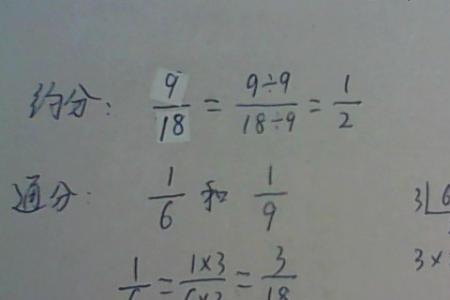 约分: 9/18 = 9÷9/18÷9 = 1/2
通分: 1/6 和 1/9
3
1/6 = 1×3/6×3 = 3/18
3×